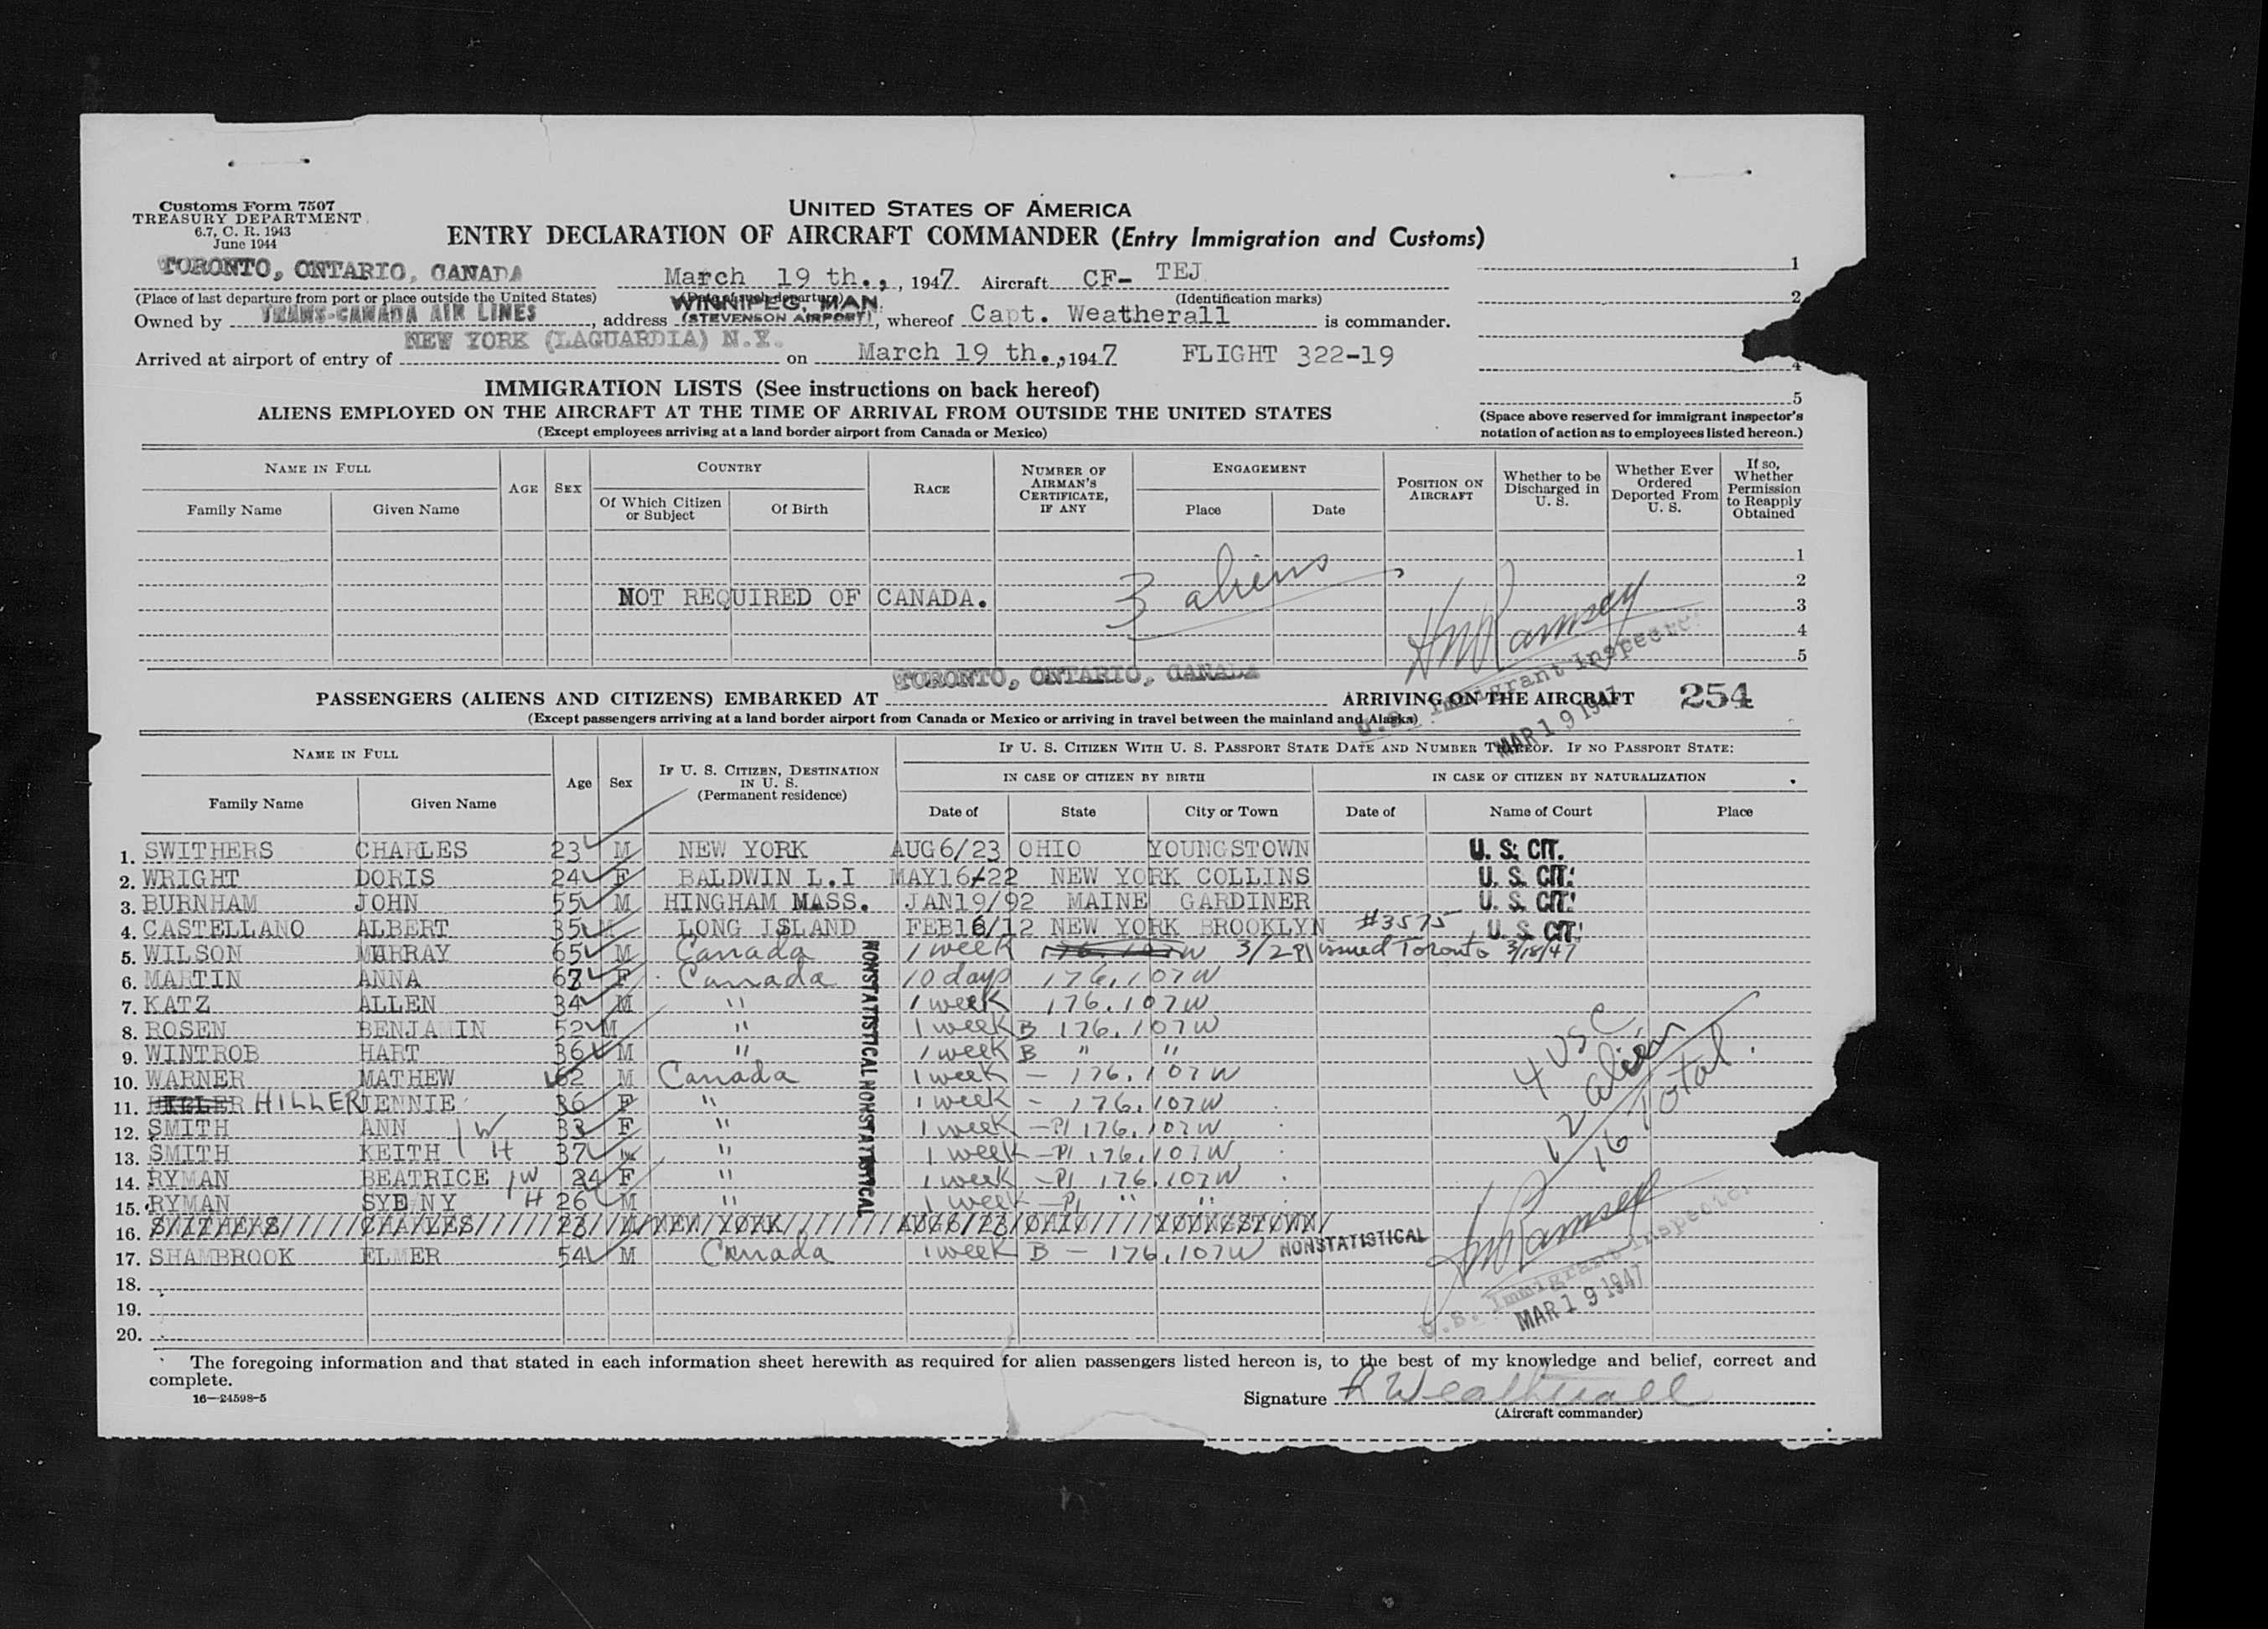 Customs Form 7507
TREASURY DEPARTMENT
6.7, C. R. 1943
June 1944
UNITED STATES OF AMERICA
ENTRY DECLARATION OF AIRCRAFT COMMANDER (Entry Immigration and Customs)
TORONTO, ONTARIO, CANADA March 19 th., , 1947 Aircraft CF- TEJ 1
(Place of last departure from port or place outside the United States) (Date of such departure) (Identification marks) 2
WINNIPEG, MAN.
Owned by TRANS-CANADA AIR LINES, address (STEVENSON AIRPORT), whereof Capt. Weatherall is commander.
NEW YORK (LAGUARDIA) N.Y.
Arrived at airport of entry of on March 19 th., 1947 FLIGHT 322-19 4
IMMIGRATION LISTS (See instructions on back hereof) 5
ALIENS EMPLOYED ON THE AIRCRAFT AT THE TIME OF ARRIVAL FROM OUTSIDE THE UNITED STATES (Space above reserved for immigrant inspector's
(Except employees arriving at a land border airport from Canada or Mexico) notation of action as to employees listed hereon.)
NAME IN FULL AGE SEX COUNTRY RACE NUMBER OF AIRMAN'S CERTIFICATE, IF ANY ENGAGEMENT POSITION ON AIRCRAFT Whether to be Discharged in U. S. Whether Ever Ordered Deported From U. S. If so, Whether Permission to Reapply Obtained
Family Name Given Name Of Which Citizen or Subject Of Birth Place Date
1
2
NOT REQUIRED OF CANADA. 3 aliens 3
4
5
HM Ramsey
U.S. Immigrant Inspector
MAR 19 1947
TORONTO, ONTARIO, CANADA
PASSENGERS (ALIENS AND CITIZENS) EMBARKED AT ARRIVING ON THE AIRCRAFT 254
(Except passengers arriving at a land border airport from Canada or Mexico or arriving in travel between the mainland and Alaska)
NAME IN FULL Age Sex IF U. S. CITIZEN, DESTINATION IN U. S. (Permanent residence) IF U. S. CITIZEN WITH U. S. PASSPORT STATE DATE AND NUMBER THEREOF. IF NO PASSPORT STATE:
IN CASE OF CITIZEN BY BIRTH IN CASE OF CITIZEN BY NATURALIZATION
Family Name Given Name Date of State City or Town Date of Name of Court Place
1. SWITHERS CHARLES 23 M NEW YORK AUG6/23 OHIO YOUNGSTOWN U. S. CIT.
2. WRIGHT DORIS 24 F BALDWIN L.I MAY16/22 NEW YORK COLLINS U. S. CIT.
3. BURNHAM JOHN 55 M HINGHAM MASS. JAN19/92 MAINE GARDINER U. S. CIT.
4. CASTELLANO ALBERT 35 M LONG ISLAND FEB16/12 NEW YORK BROOKLYN #3575 U. S. CIT.
5. WILSON MURRAY 65 M Canada 1 week 176.107W 3/2 P1 issued Toronto 3/18/47
6. MARTIN ANNA 67 F Canada 10 days 176.107W
7. KATZ ALLEN 34 M " 1 week 176.107W
8. ROSEN BENJAMIN 52 M " 1 week B 176.107W
9. WINTROB HART 36 M " 1 week B " "
10. WARNER MATHEW 62 M Canada 1 week - 176.107W
11. HILLER JENNIE 36 F " 1 week - 176.107W
12. SMITH ANN W 33 F " 1 week - P1 176.107W
13. SMITH KEITH H 37 M " 1 week - P1 176.107W
14. RYMAN BEATRICE W 24 F " 1 week - P1 176.107W
15. RYMAN SYDNY H 26 M " 1 week - P1 " "
16. SWITHERS CHARLES 23 M NEW YORK AUG6/23 OHIO YOUNGSTOWN
17. SHAMBROOK ELMER 54 M Canada 1 week B - 176.107W NONSTATISTICAL
18.
19.
20.
NONSTATISTICAL NONSTATISTICAL
4 USC
12 alien
16 Total
HM Ramsey
U.S. Immigrant Inspector
MAR 19 1947
The foregoing information and that stated in each information sheet herewith as required for alien passengers listed hereon is, to the best of my knowledge and belief, correct and
complete.
16—24598-5
Signature R Weatherall
(Aircraft commander)